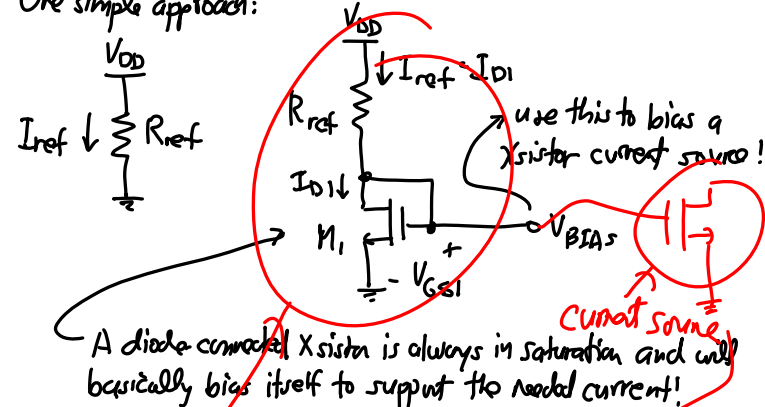 One simple approach:
VDD
Iref ↓ Rref
VDD
↓ Iref = ID1
Rref
ID1 ↓
M1
+
- VGS1
VBIAS
use this to bias a
Xsistor current source!
Current source
A diode connected Xsistor is always in saturation and will
basically bias itself to support the needed current!